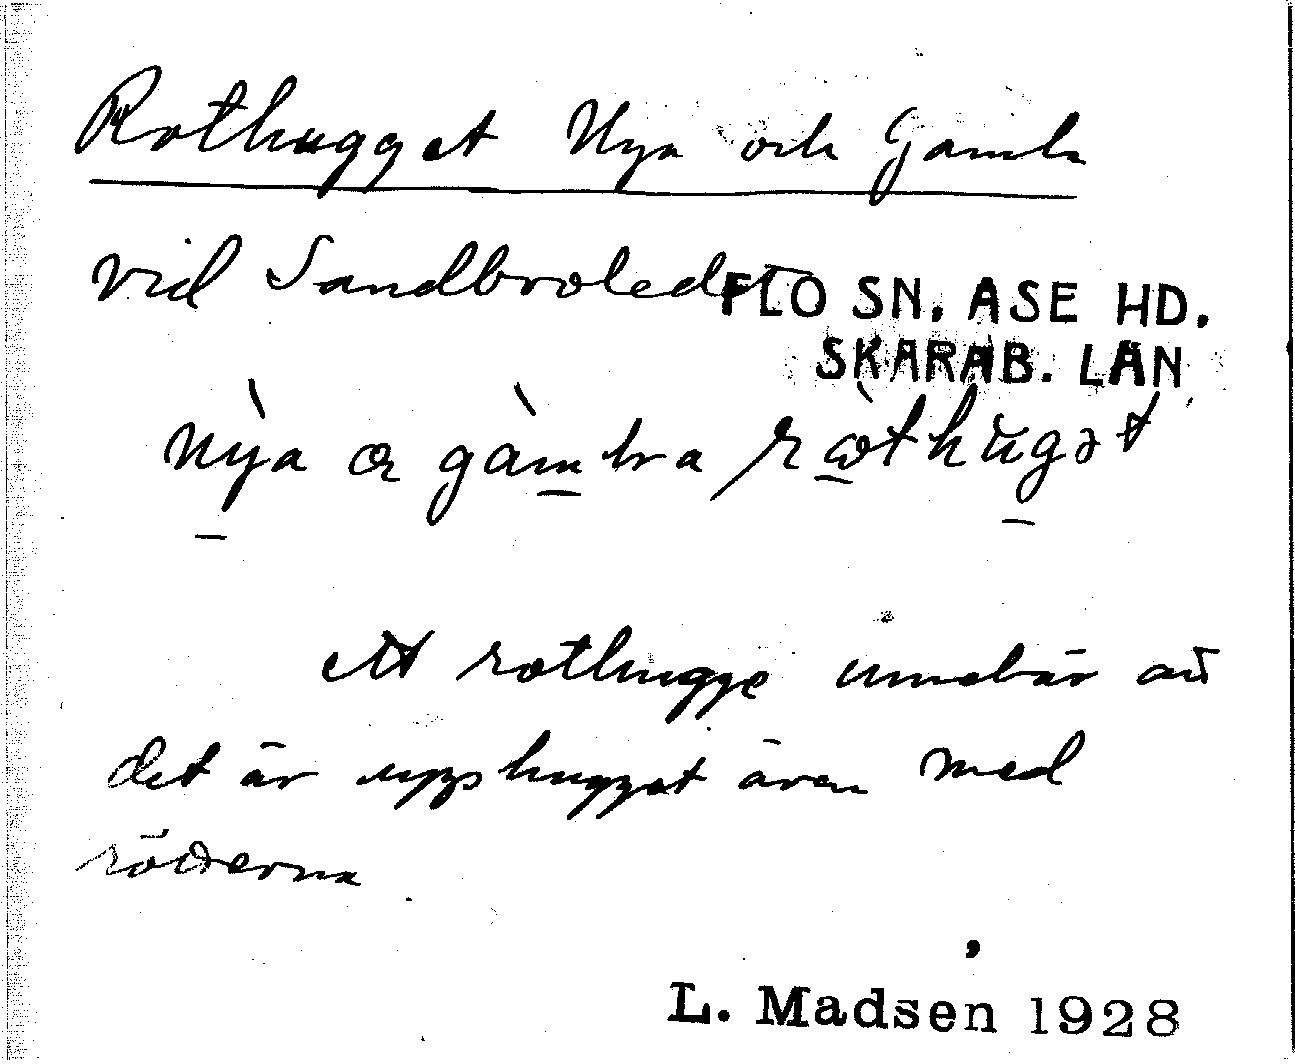 Rothugget Nya och Gamla
vid Sandbroledet
FLO SN. ÅSE HD.
SKARAB. LÄN
nỳa æ gàmbra ræthùgət
ett rothugge innebär att
det är upphugget även med
rötterna
L. Madsen 1928